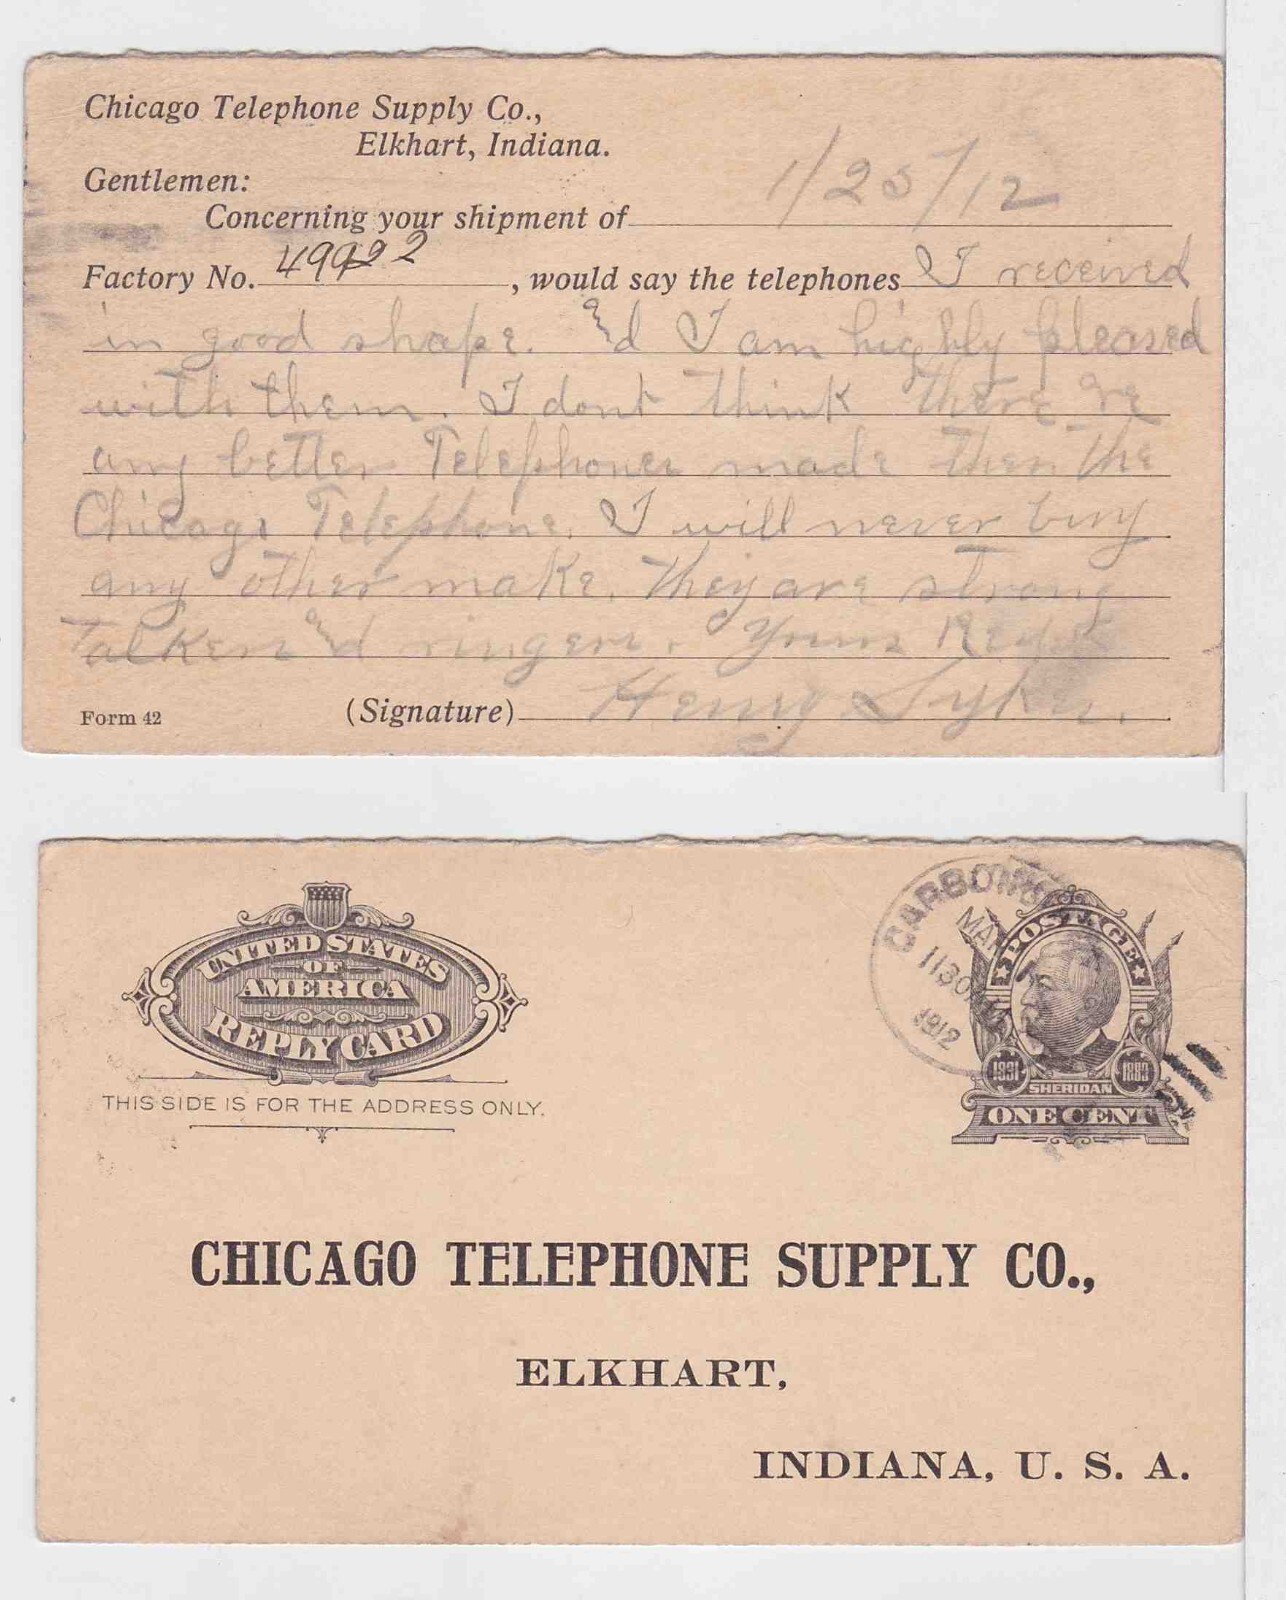 Chicago Telephone Supply Co.,
Elkhart, Indiana.
Gentlemen:
Concerning your shipment of 1/25/12
Factory No. 49922, would say the telephones I received
in good shape. and I am highly pleased
with them. I dont think there are
any better Telephones made then the
Chicago Telephone. I will never buy
any other make. they are strong
Talkers and ringers. Yours
Form 42 (Signature) Henry
UNITED STATES
OF
AMERICA
REPLY CARD
THIS SIDE IS FOR THE ADDRESS ONLY.
1130
1912
POSTAGE
1831 1888
SHERIDAN
ONE CENT
CHICAGO TELEPHONE SUPPLY CO.,
ELKHART,
INDIANA, U. S. A.